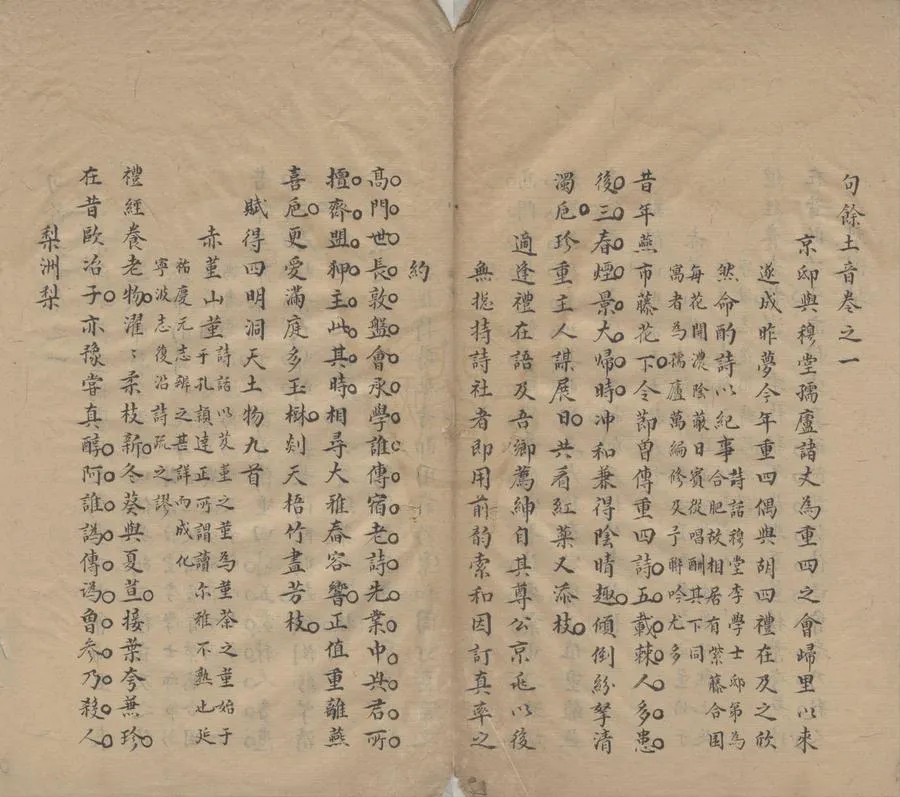 句餘土音卷之一
京邸與穆堂孺廬諸丈為重四之會㱕里以來
遂成昨夢今年重四偶與胡四禮在及之欣
然命酌詩以紀事詩話穆堂李學士邸第為
合肥故相居有紫藤合圍
每花開濃陰蔽日賓從唱酬其下同
寓者為孺廬萬編修及予聯吟尤多
昔年燕市藤花下令節曾傳重四詩五載棘人多患
後三春煙景大㱕時冲和兼得陰晴趣傾倒紛拏清
濁卮珍重主人謀展日共看紅藥又添枝
適逢禮在語及吾鄉薦紳自其尊公京兆以後
無提持詩社者即用前韵索和因訂真率之
約
髙門世長敦盤會承學誰傳宿老詩先業中興君所
擅齊盟狎主此其時相尋大雅春容響正值重離燕
喜卮更愛滿庭多玉樹剡天梧竹盡芳枝
賦得四明洞天土物九首
赤堇山堇詩話以芨堇之堇為堇荼之堇始于
于孔頴達正所謂讀尔雅不熟也延
祐慶元志辨之甚詳而成化
寧波志復沿詩疏之謬
禮經養老物濯〻柔枝新冬葵與夏荁接葉夸兼珍
在昔歐冶子亦豫嘗真醇阿誰譌傳譌魯參乃殺人
梨洲梨